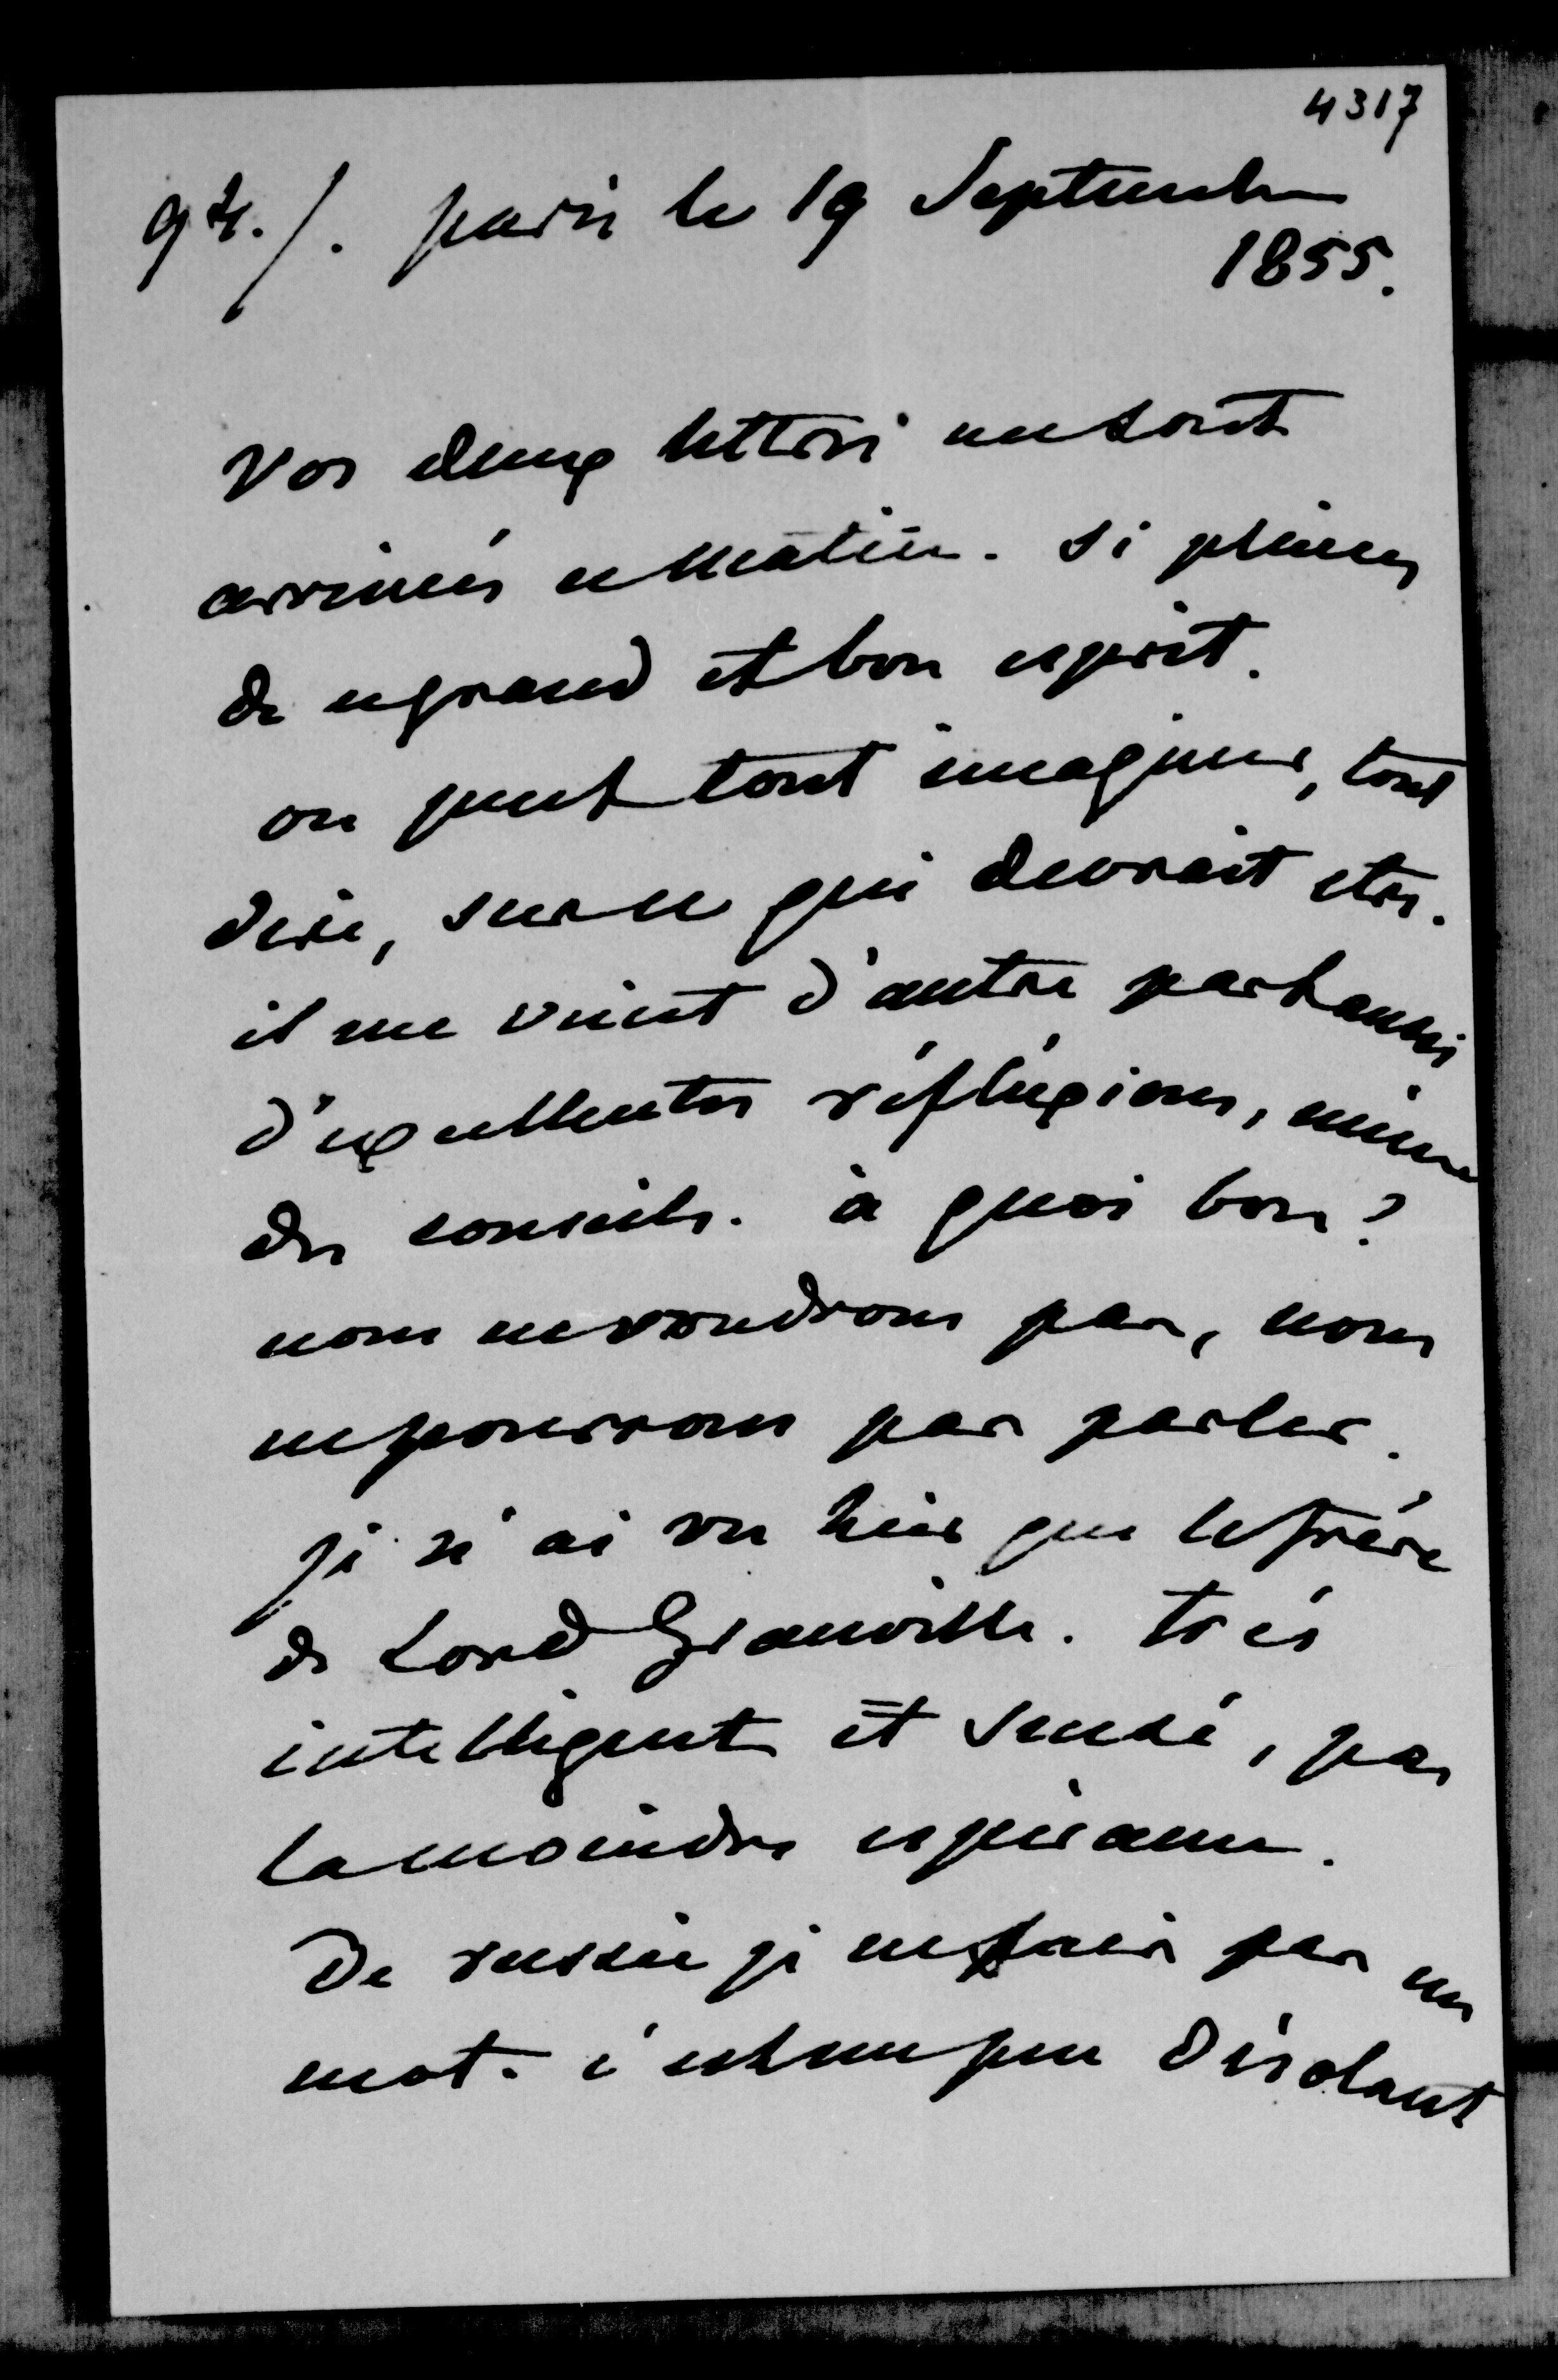 4317
94./. paris le 19 Septembre
1855.
Vos deux lettres me sont
arrivées ce matin. Si pleines
de ce grand et bon esprit.
on peut tout imaginer, tout
dire, sur ce qui devrait etre.
il me vient d'autre part aussi
d'excellentes réfléxions, même
des conseils. à quoi bon?
nous ne voudrons pas, nous
ne pourrons pas parler.
je n'ai vu hier que le frère
de Lord Granville. très
intelligent et sensé, pas
la moindre espérance.
De russie je ne sais pas un
mot. c'est un peu désolant